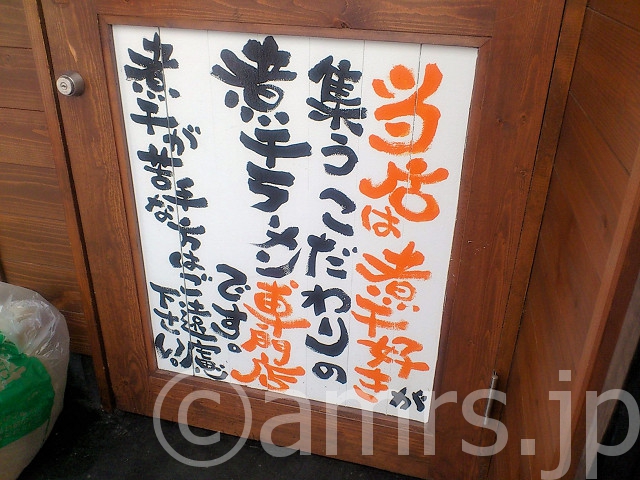 当店は煮干好きが
集うこだわりの
煮干ラーメン専門店
です。
煮干が苦手な
方はご遠慮
下さい。
©amrs.jp